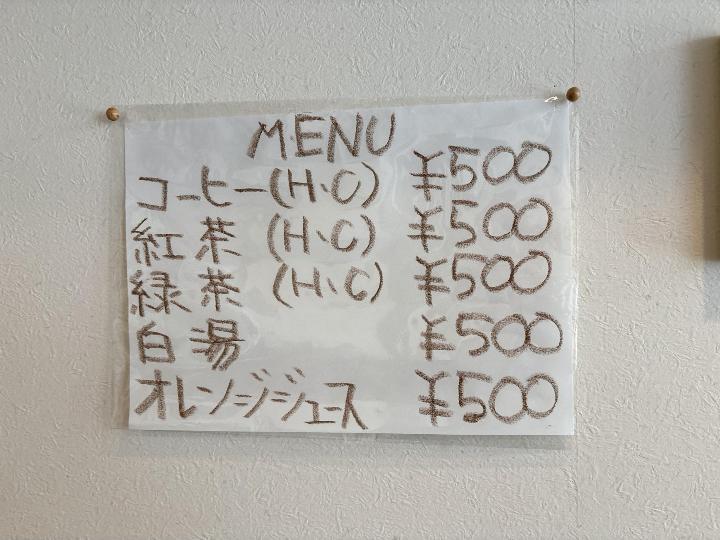 MENU
コーヒー(H・C) ¥500
紅茶 (H・C) ¥500
緑茶 (H・C) ¥500
白湯 ¥500
オレンジジュース ¥500